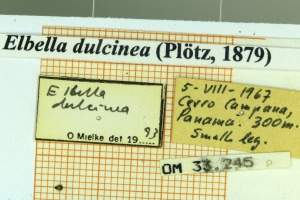 Elbella dulcinea (Plötz, 1879)
Elbella
dulcinea
O Mielke det 19..... 93
5-VIII-1967
Cerro Campana,
Panama. 300m.
Small leg.
OM 33.245